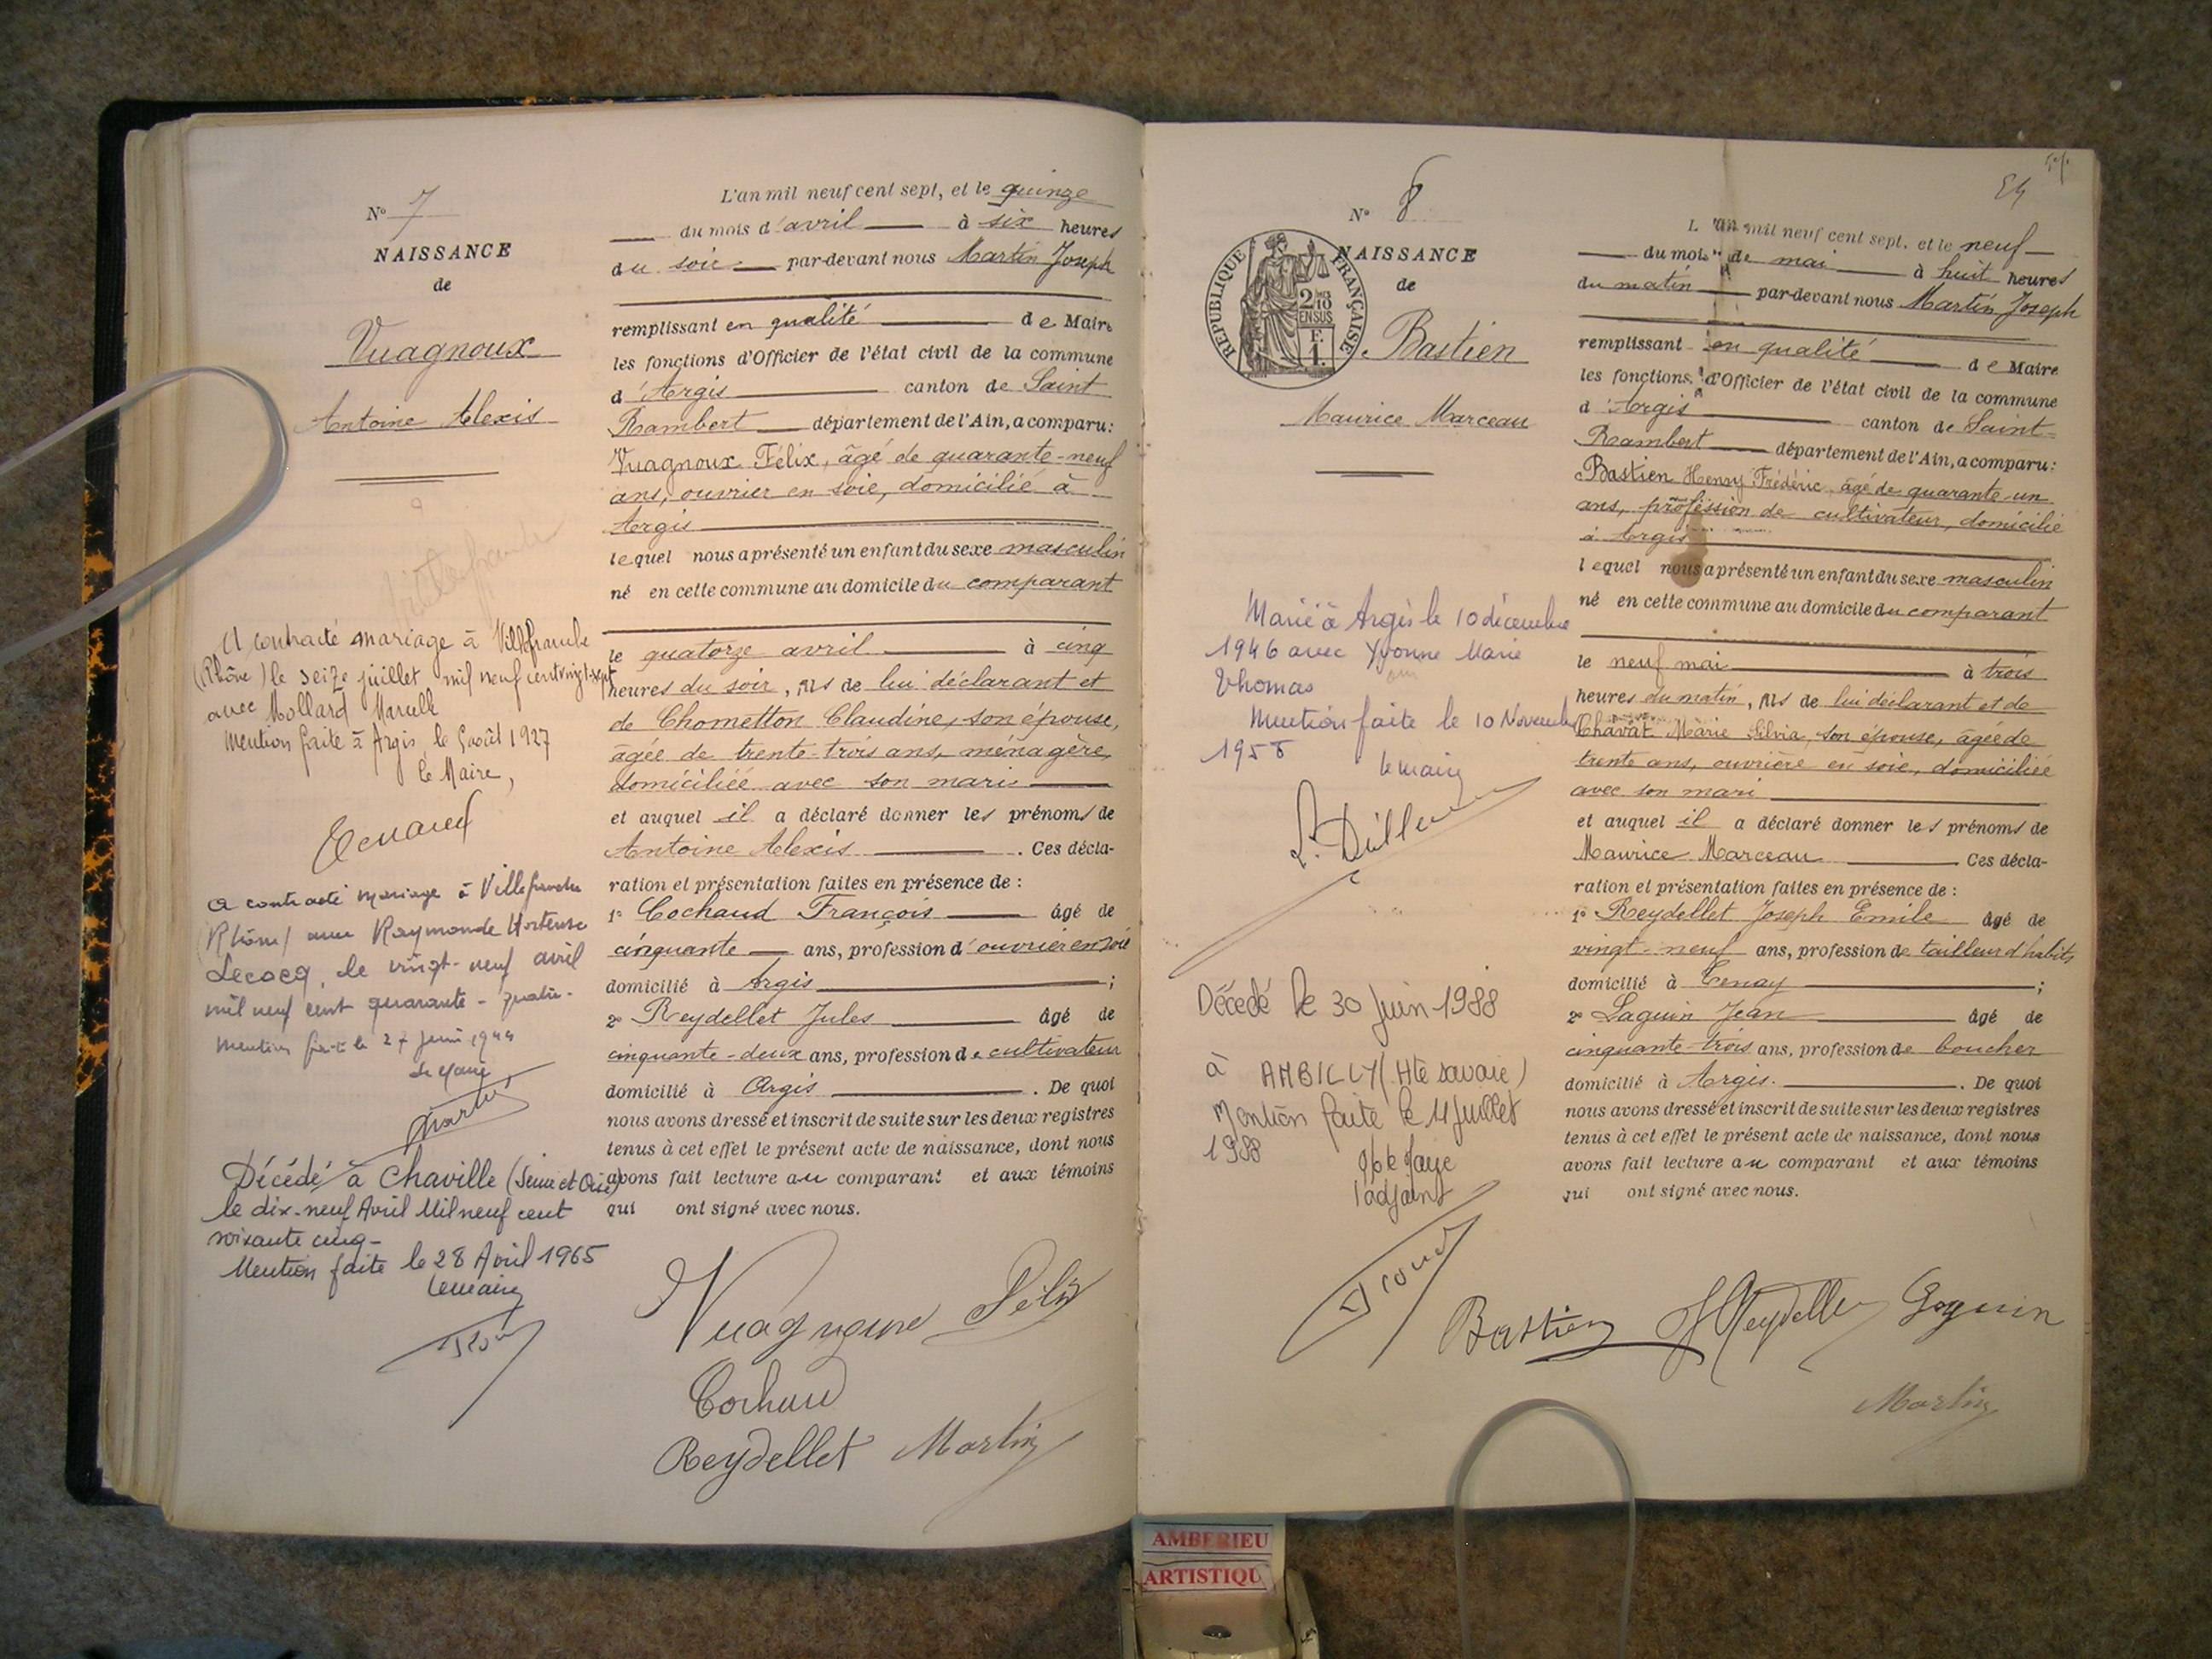 N° 7
NAISSANCE
de
Vuagnoux
Antoine Alexis
A contracté mariage à Villefranche
(Rhône) le seize juillet mil neuf cent vingt-sept
avec Mollard Marcelle
Mention faite à Argis le 5 août 1927
le Maire,
a contracté mariage à Villefranche
(Rhône) avec Raymonde Hortense
Lecocq, le vingt-neuf avril
mil neuf cent quarante-quatre-
Mention faite le 27 juin 1944
Le Maire,
Martin
Décédé à Chaville (Seine et Oise)
le dix-neuf Avril Mil neuf cent
soixante cinq-
Mention faite le 28 Avril 1965
Le Maire
L'an mil neuf cent sept, et le quinze
du mois d'avril à six heures
du soir par-devant nous Martin Joseph
remplissant en qualité de Maire
les fonctions d'Officier de l'état civil de la commune
d'Argis canton de Saint
Rambert département de l'Ain, a comparu:
Vuagnoux Félix, âgé de quarante-neuf
ans, ouvrier en soie, domicilié à
Argis
lequel nous a présenté un enfant du sexe masculin
né en cette commune au domicile du comparant
le quatorze avril à cinq
heures du soir, fils de lui déclarant et
de Chometton Claudine, son épouse,
âgée de trente-trois ans, ménagère,
domiciliée avec son mari
et auquel il a déclaré donner les prénoms de
Antoine Alexis. Ces décla-
ration et présentation faites en présence de :
1° Cochaud François âgé de
cinquante ans, profession d'ouvrier en soie
domicilié à Argis ;
2° Reydellet Jules âgé de
cinquante-deux ans, profession de cultivateur
domicilié à Argis. De quoi
nous avons dressé et inscrit de suite sur les deux registres
tenus à cet effet le présent acte de naissance, dont nous
avons fait lecture au comparant et aux témoins
qui ont signé avec nous.
Vuagnoux Félix
Cochaud
Reydellet Martin
54
N° 8
NAISSANCE
de
REPUBLIQUE FRANÇAISE
2/10 EN SUS
F. 1.
Bastien
Maurice Marceau
Marié à Argis le 10 décembre
1946 avec Yvonne Marie
Thomas
Mention faite le 10 Novembre
1958
le maire
Décédé le 30 Juin 1988
à AMBILLY (Hte savoie)
Mention faite le 4 juillet
1988
l'adjoint
L'an mil neuf cent sept, et le neuf
du mois de mai à huit heures
du matin par-devant nous Martin Joseph
remplissant en qualité de Maire
les fonctions d'Officier de l'état civil de la commune
d'Argis canton de Saint-
Rambert département de l'Ain, a comparu:
Bastien Henry Frédéric, âgé de quarante-un
ans, profession de cultivateur, domicilié
à Argis
lequel nous a présenté un enfant du sexe masculin
né en cette commune au domicile du comparant
le neuf mai à trois
heures du matin, fils de lui déclarant et de
Chavat Marie Silvia, son épouse, âgée de
trente ans, ouvrière en soie, domiciliée
avec son mari
et auquel il a déclaré donner les prénoms de
Maurice Marceau Ces décla-
ration et présentation faites en présence de :
1° Reydellet Joseph Emile âgé de
vingt-neuf ans, profession de tailleur d'habits
domicilié à Tenay ;
2° Laguin Jean âgé de
cinquante-trois ans, profession de boucher
domicilié à Argis. De quoi
nous avons dressé et inscrit de suite sur les deux registres
tenus à cet effet le présent acte de naissance, dont nous
avons fait lecture au comparant et aux témoins
qui ont signé avec nous.
Bastien J Reydellet Goguin
Martin
AMBERIEU
ARTISTIQU